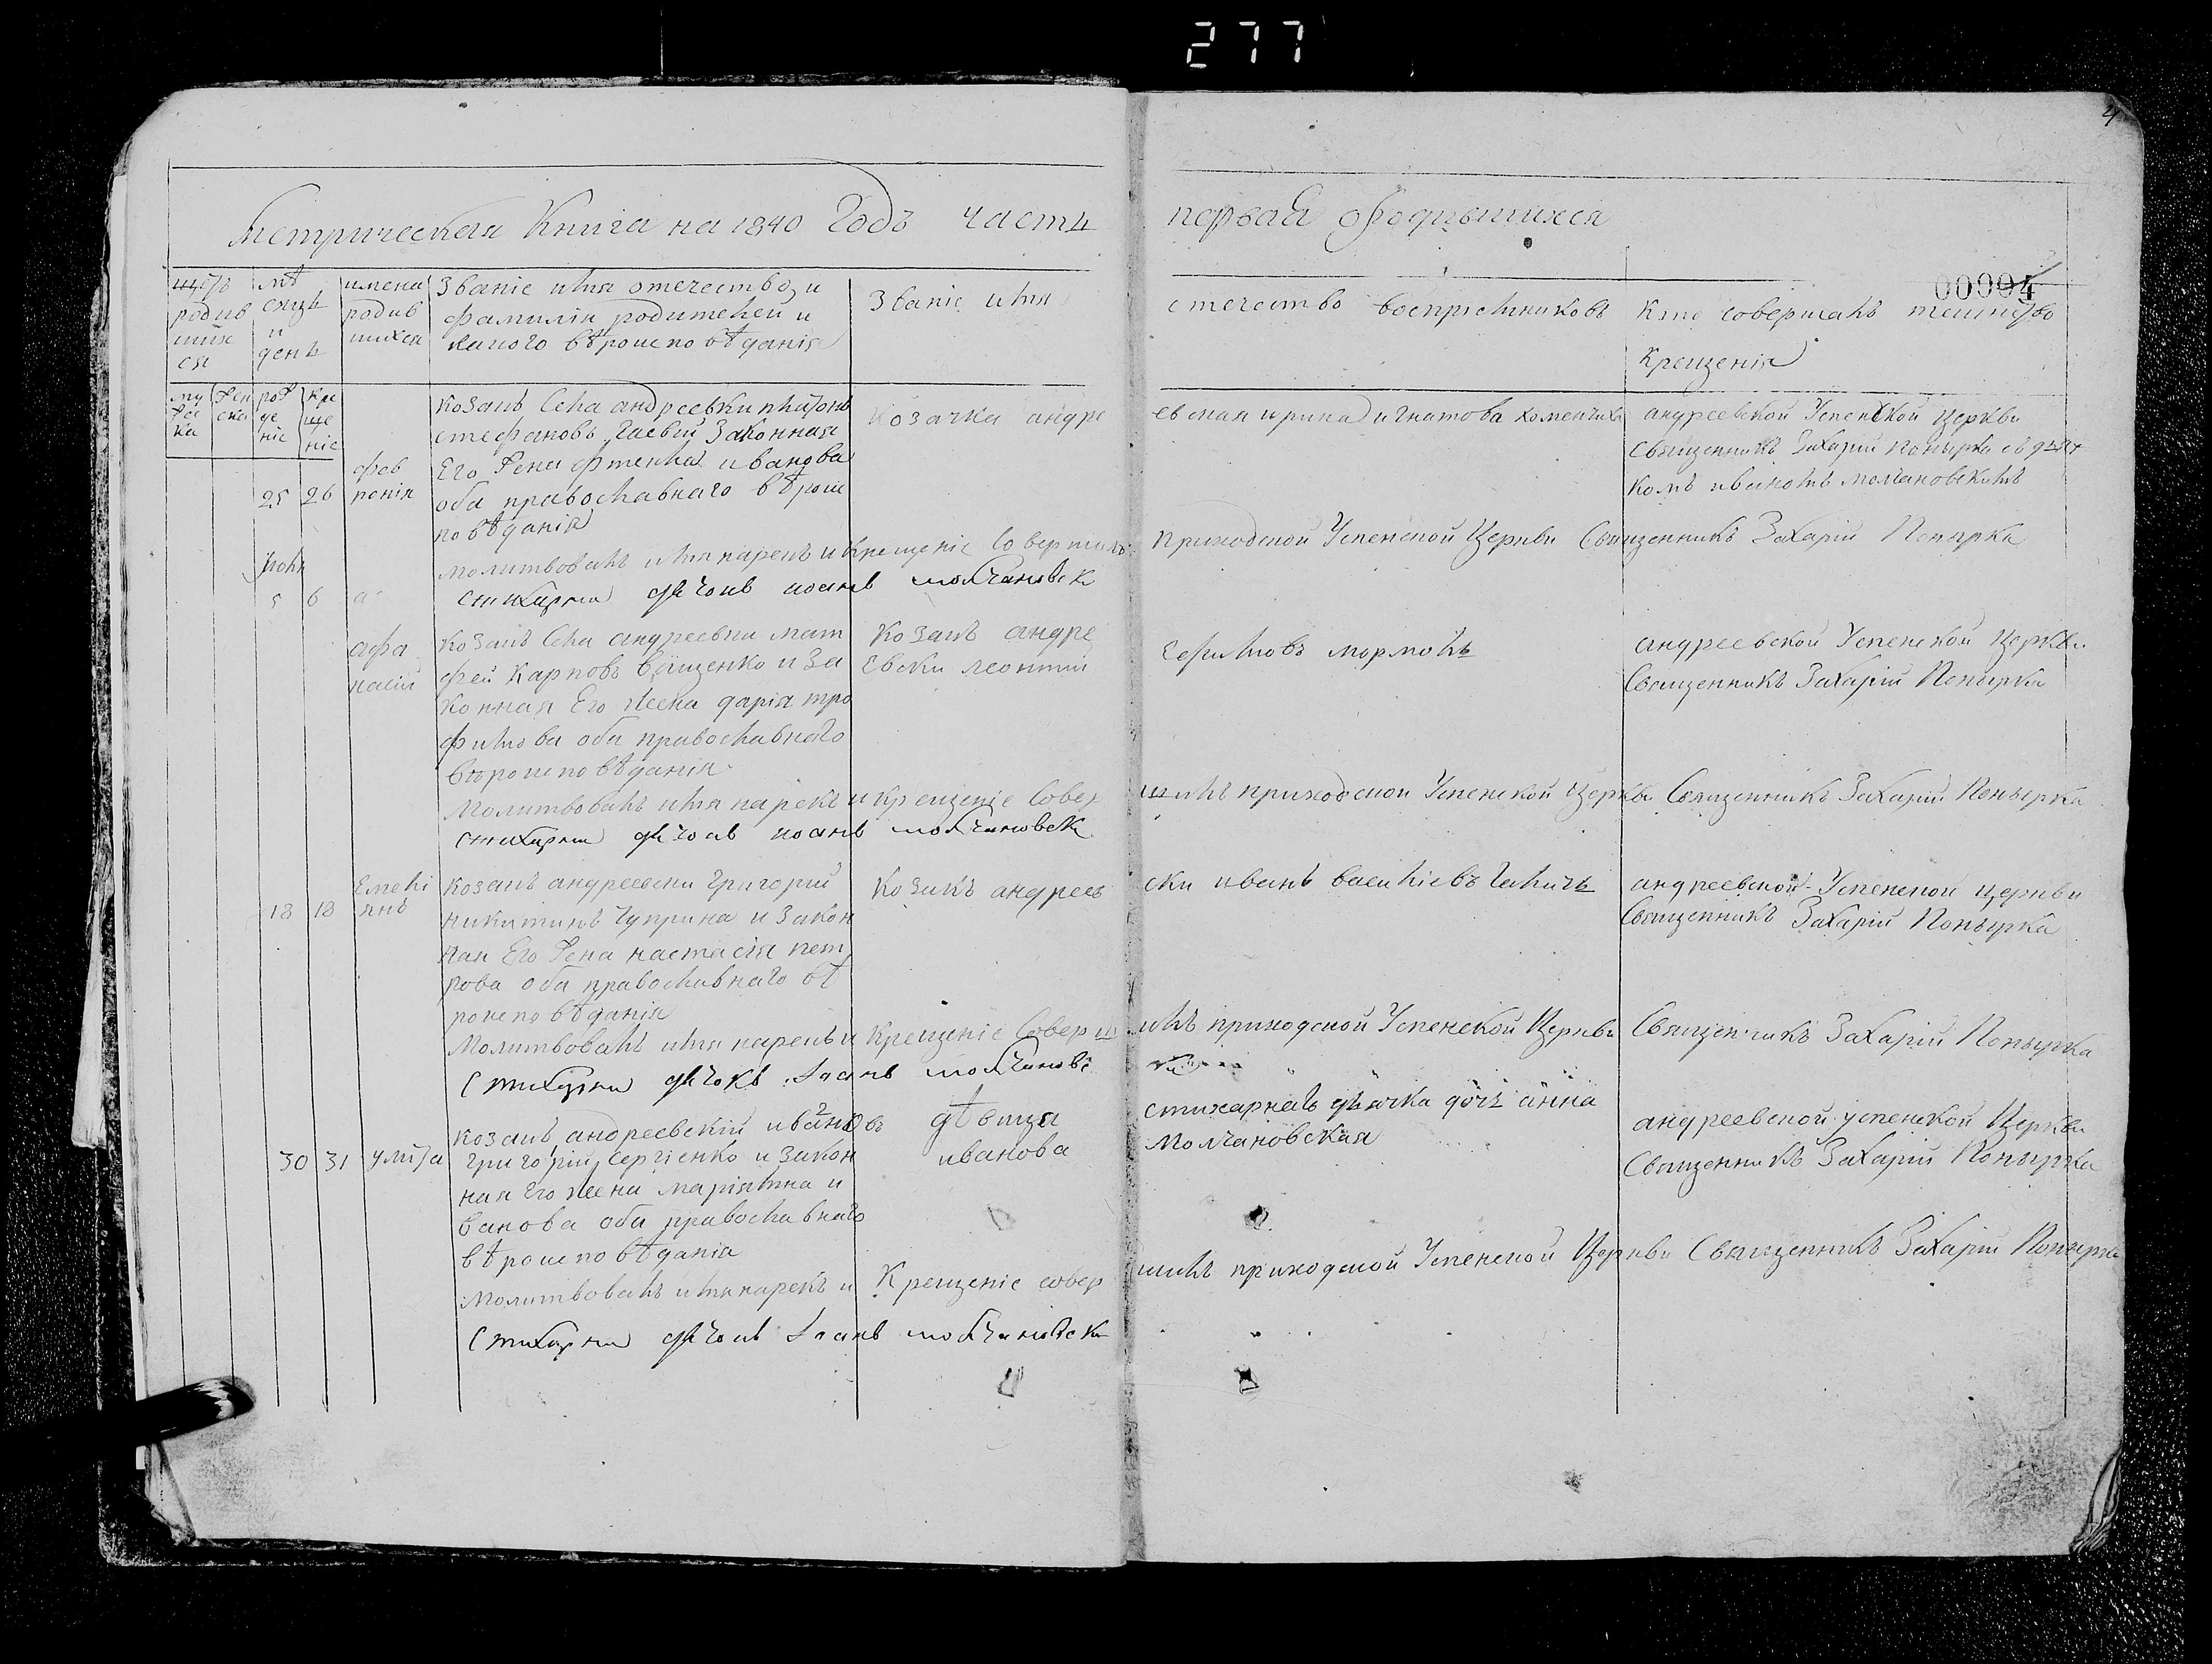 277
4
Метрическая Книга на 1840 Годъ часть
первая ѡ Родившихся
00004
щетъ родив шихся
мѣ сяцъ и день
имена родив шихся
Званіе имя отечество, и
фамилія родителей и
какого вѣроисповѣданія
Званіе имя
отечество воспріемниковъ
Кто совершалъ таинство
Крещенія
му жес ка
жен ска
рож де ніе
кре ще ніе
25 26
фев ронія
козакъ села андреевки платонъ
стефановъ гаевый законная
Его жена фтенка иванова
оба православнаго вѣроис
повѣданія
Козачка андре
евская ирина игнатова
андреевской Успенской церкви
Священникъ Захарій Попырка съ дьяч
комъ иваномъ молчановскимъ
молитвовалъ имя нарекъ и крещеніе совершилъ
приходской Успенской Церкви Священникъ Захарій Попырка
стихарный дячокъ иоанъ молчановск
5 6
афа насій
козакъ села андреевки мат
фей карповъ ващенко и за
конная Его жена дарія тро
фимова оба православнаго
вѣроисповѣданія
козакъ андре
евски леонтий
ефимовъ мормоль
андреевской Успенской церкви
Священникъ Захарій Попырка
Молитвовалъ имя нарекъ и крещеніе совер
шилъ приходской Успенской Церкви Священникъ Захарій Попырка
стихарный дячокъ иоанъ молчановск
18 18
Емелі янъ
козакъ андреевски григорий
никитинъ чуприна и закон
ная Его жена настасія пет
рова оба православнаго вѣ
роисповѣданія
Козакъ андреев
ски иванъ василіевъ
андреевской Успенской церкви
Священникъ Захарій Попырка
Молитвовалъ имя нарекъ и крещеніе соверш
илъ приходской Успенской Церкви Священникъ Захарій Попырка
стихарный дячокъ иоанъ молчановс
30 31
улита
козакъ андреевскій ивановъ
григорій сергіенко и закон
ная его жена маріямна и
ванова оба православнаго
вѣроисповѣданія
дѣвица
иванова
стихарнаго дьячка дочъ анна
Молчановская
андреевской успенской Церкви
Священникъ Захарій Попырка
Молитвовалъ имя нарекъ и Крещеніе совер
шилъ приходской Успенской Церкви Священникъ Захарій Попырка
стихарный дячокъ иоанъ молчановск